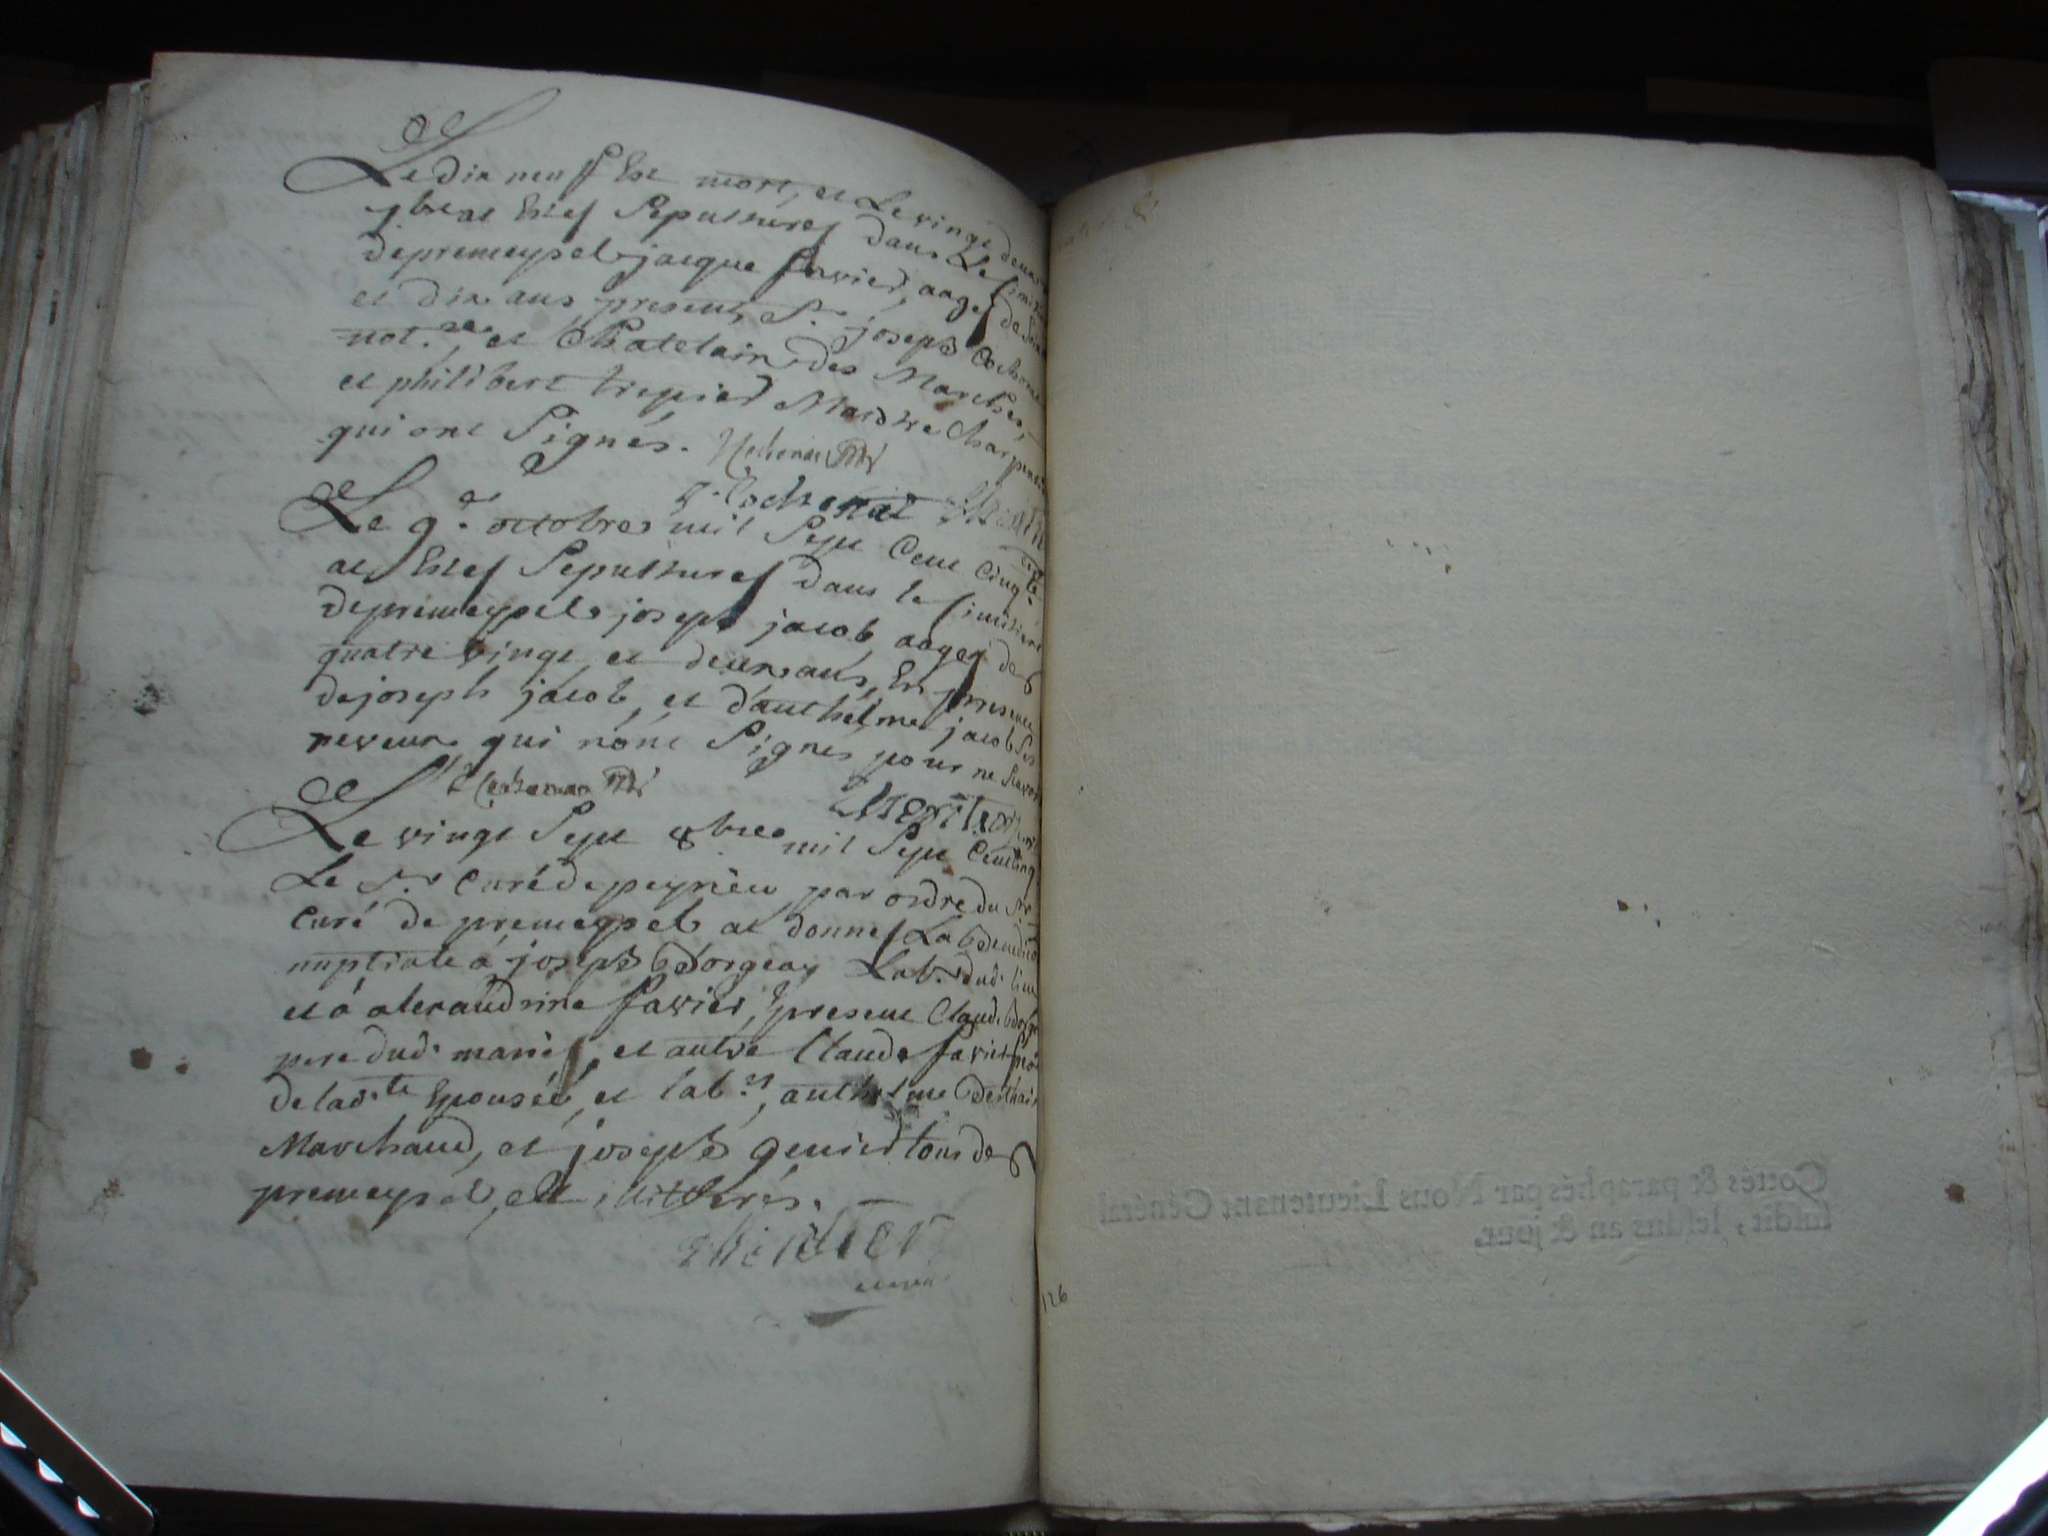 Le dix neuf Est mort, et Le vingt deux
7bre at Estes Sepultures dans Le Simitiere
de premeysel jacque favier, aages de
et dix ans, present, Sr. joseph Cochonat
not.re et Chatelain des Marches,
et philibert trepier Maistre Charpentier
qui ont Signés.
Cochonat
Le 9e octobre mil Sept Cent Cinqte
at Estes Sepultures dans le Simitiere
de premeysel joseph jacob aages de
quatre vingt et deux ans, En presence
de joseph jacob, et d'anthelme jacob Ses
neveux qui n'ont Signes pour ne Scavoir
Le vingt Sept 8bre mil Sept Cent Cinq
Le Sr Curé de peyrieu par ordre du Sr
Curé de premeysel at donnes La benedict
nuptiale a joseph Borgeay Labr dud. lieu
et a alexandrine favier, present Claude Borge
pere dud. maries, et autre Claude favier
de ladte Epousée, et labrs, anthelme
Marchand, et joseph genier tous de
premeysel, et illitterés.
126
Cottés & paraphés par Nous Lieutenant Général
susdit, lesdits an & jour.